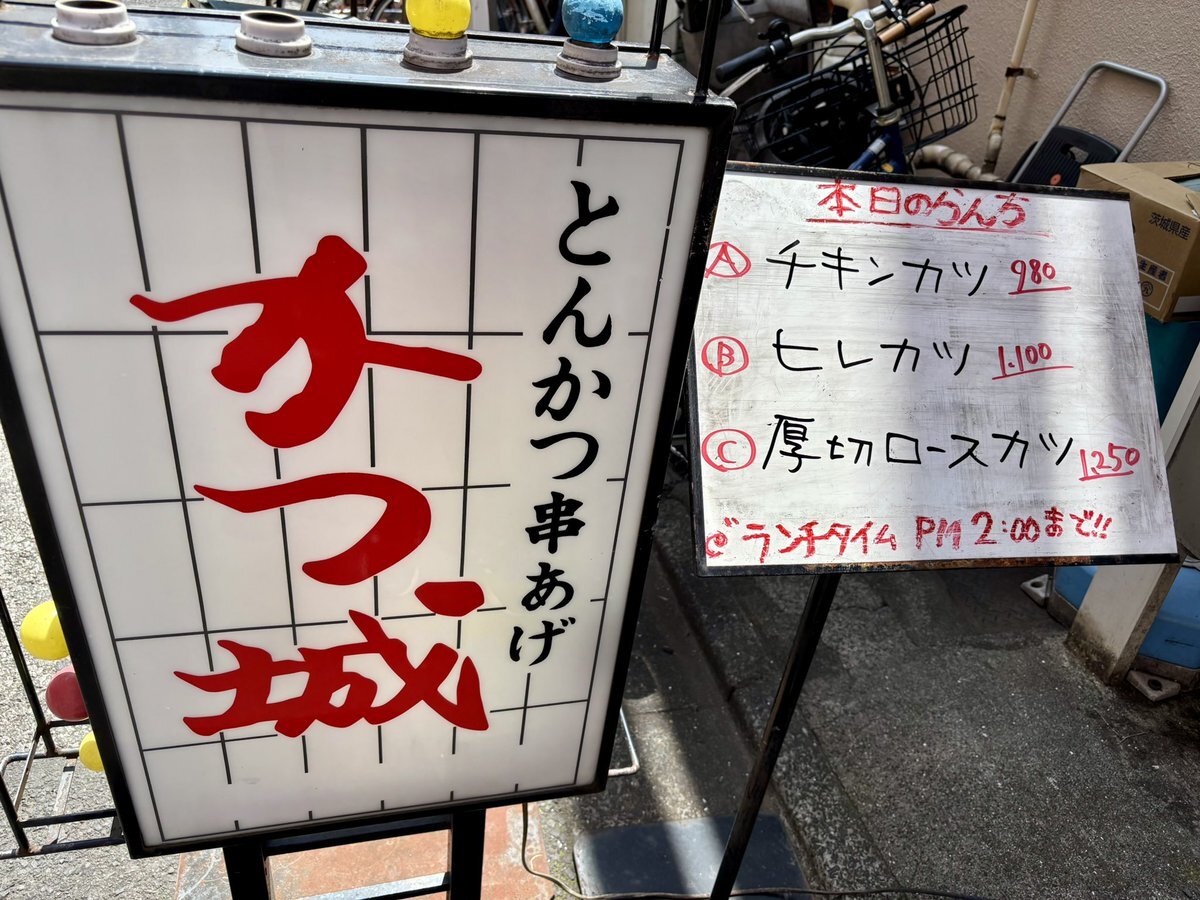 とんかつ串あげ
かつ城
本日のらんち
Ⓐ チキンカツ 980
Ⓑ ヒレカツ 1.100
Ⓒ 厚切ロースカツ 1250
ランチタイム PM 2:00まで!!
茨城県産